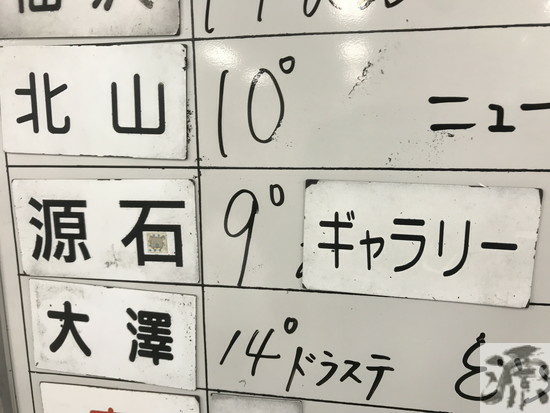 北山 10° ニュー
源石 9° ギャラリー
大澤 14° ドラステ
源